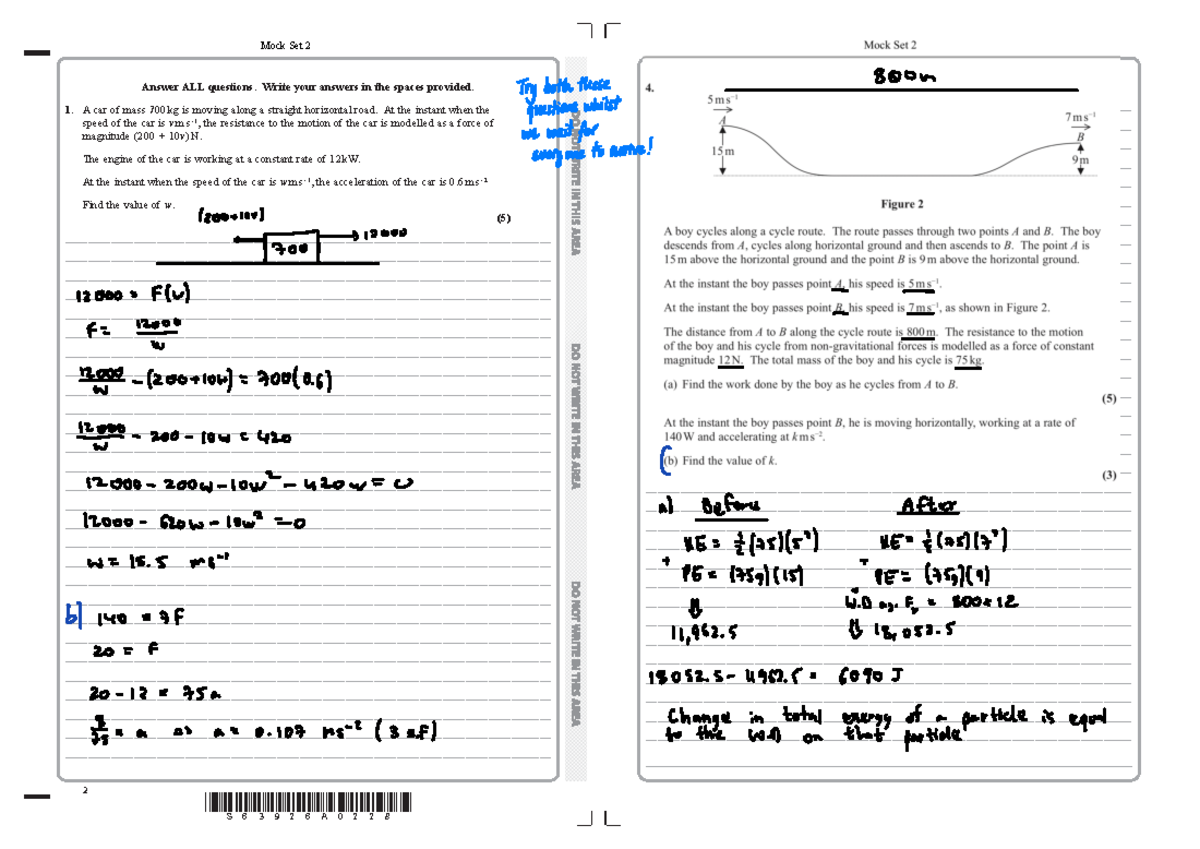 Mock Set 2
Answer ALL questions. Write your answers in the spaces provided.
1. A car of mass 700 kg is moving along a straight horizontal road. At the instant when the
speed of the car is v m s⁻¹, the resistance to the motion of the car is modelled as a force of
magnitude (200 + 10v) N.
The engine of the car is working at a constant rate of 12 kW.
At the instant when the speed of the car is w m s⁻¹, the acceleration of the car is 0.6 m s⁻²
Find the value of w.
(5)
(200+10v)
700
12000
12000 = F(v)
F = 12000/w
12000/w - (200+10w) = 700(0.6)
12000/w - 200 - 10w = 420
12000 - 200w - 10w² - 420w = 0
12000 - 620w - 10w² = 0
w = 15.5 ms⁻¹
b) 140 = 7F
20 = F
20 - 12 = 75a
8/75 = a ⇒ a = 0.107 ms⁻² (3 s.f)
2
S63926A0228
Try both these
questions whilst
we wait for
everyone to arrive!
DO NOT WRITE IN THIS AREA
DO NOT WRITE IN THIS AREA
DO NOT WRITE IN THIS AREA
Mock Set 2
4.
800m
5 m s⁻¹
A
15 m
7 m s⁻¹
B
9 m
Figure 2
A boy cycles along a cycle route. The route passes through two points A and B. The boy
descends from A, cycles along horizontal ground and then ascends to B. The point A is
15 m above the horizontal ground and the point B is 9 m above the horizontal ground.
At the instant the boy passes point A, his speed is 5 m s⁻¹.
At the instant the boy passes point B, his speed is 7 m s⁻¹, as shown in Figure 2.
The distance from A to B along the cycle route is 800 m. The resistance to the motion
of the boy and his cycle from non-gravitational forces is modelled as a force of constant
magnitude 12 N. The total mass of the boy and his cycle is 75 kg.
(a) Find the work done by the boy as he cycles from A to B.
(5)
At the instant the boy passes point B, he is moving horizontally, working at a rate of
140 W and accelerating at k m s⁻².
(b) Find the value of k.
(3)
a) Before After
KE = ½(75)(5²) KE = ½(75)(7²)
+ PE = (75g)(15) + PE = (75g)(9)
⇓ W.D ag. Fr = 800×12
11,962.5 ⇓ 18,052.5
18052.5 - 11962.5 = 6090 J
Change in total energy of a particle is equal
to the W.D on that particle